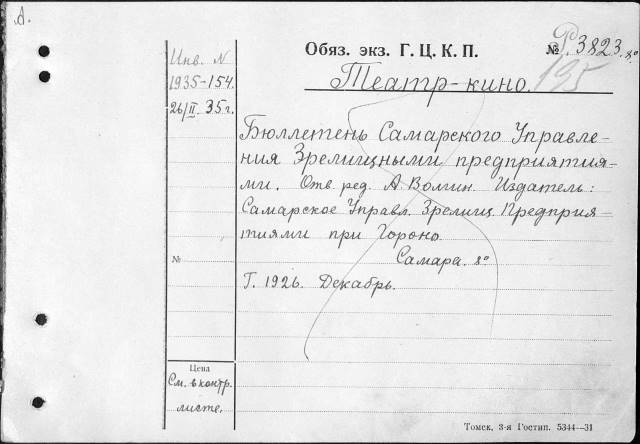 А.
Инв. N
1935-154.
26/II 35 г.
Обяз. экз. Г. Ц. К. П.
№ Р 3823. 8°
195
Театр-кино.
Бюллетень Самарского Управле-
ния Зрелищными предприятия-
ми. Отв. ред. А. Волгин. Издатель:
Самарское Управл. Зрелищ. Предприя-
тиями при Гороно.
Самара. 8°
№
Г. 1926. Декабрь.
Цена
См. в контр.
листе.
Томск. 3-я Гостип. 5344—31